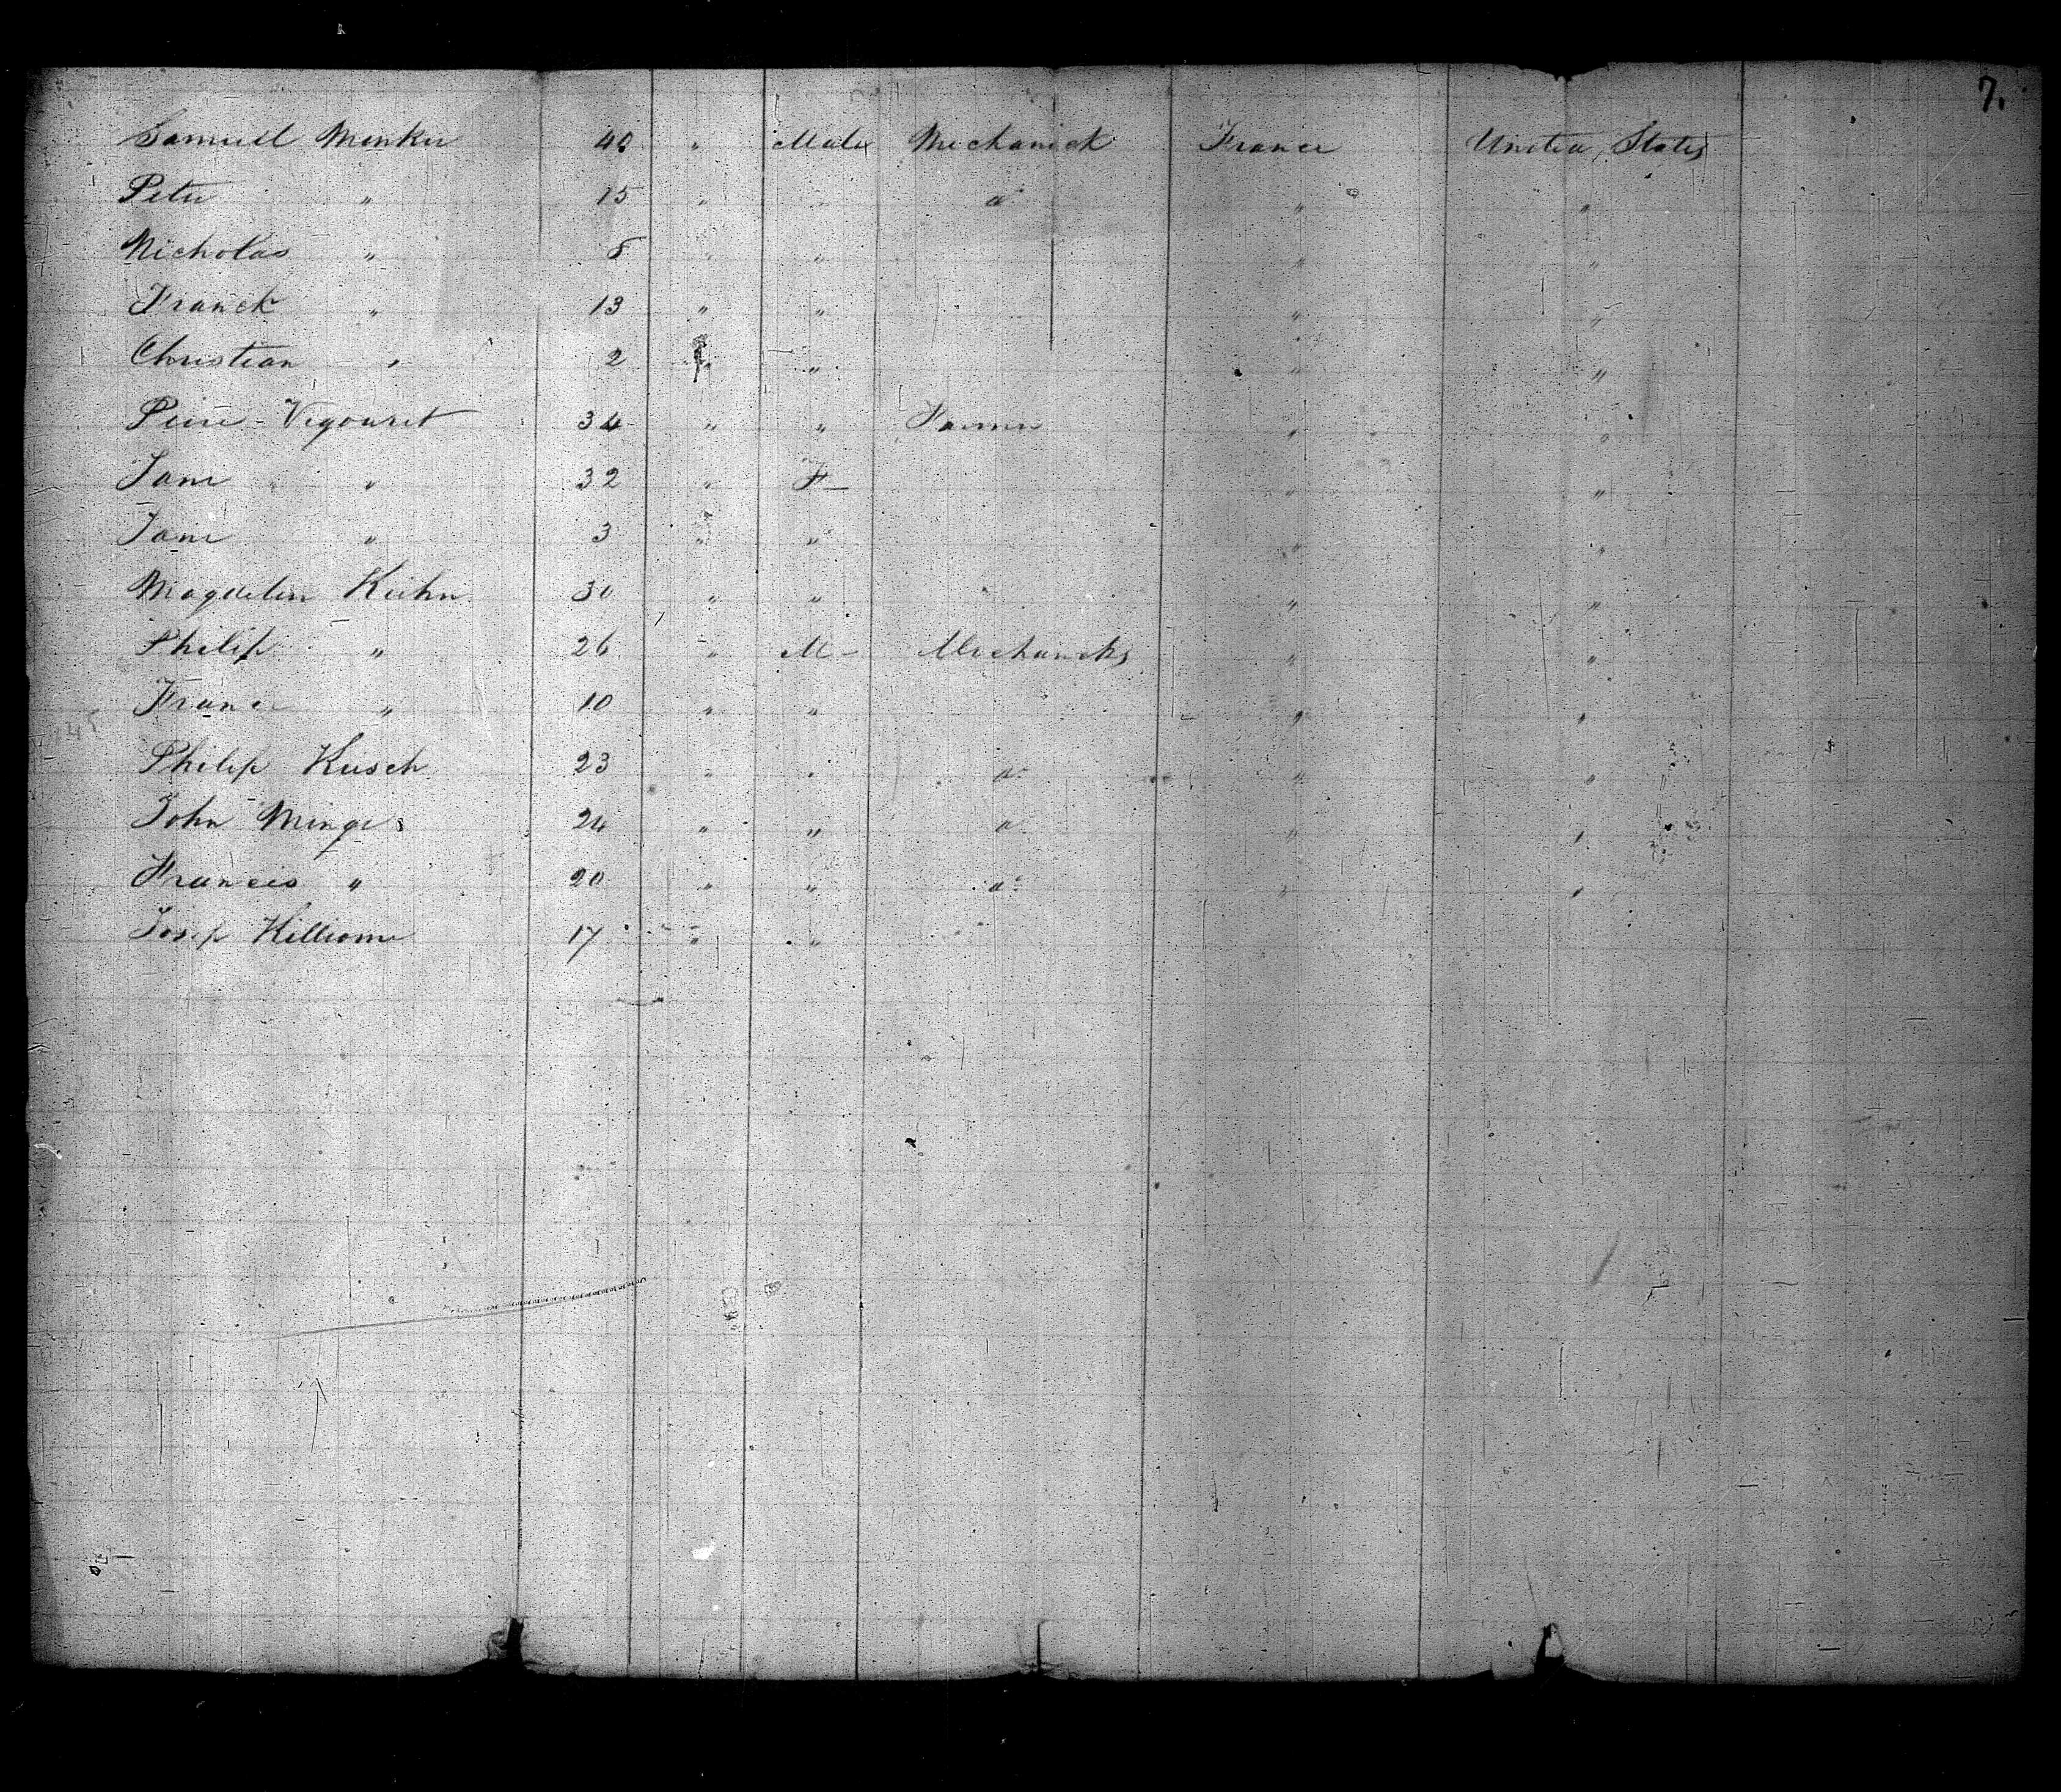 7.
Samuell Menker 40 " Male Mechanick France United States
Peter " 15 " do " "
Nicholas " 8 " " " "
Franck " 13 " " " "
Christian " 2 " " " "
Peirre Vigouret 34 " " Farmer " "
Jane " 32 " F " "
Jane " 3 " " " "
Magdelen Kuhn 30 " " " "
Philip " 26 " M Mechanicks " "
France " 10 " " " "
Philip Kusch 23 " " do " "
John Minges 24 " " do " "
Francis " 20 " " do " "
Josep 17 " "